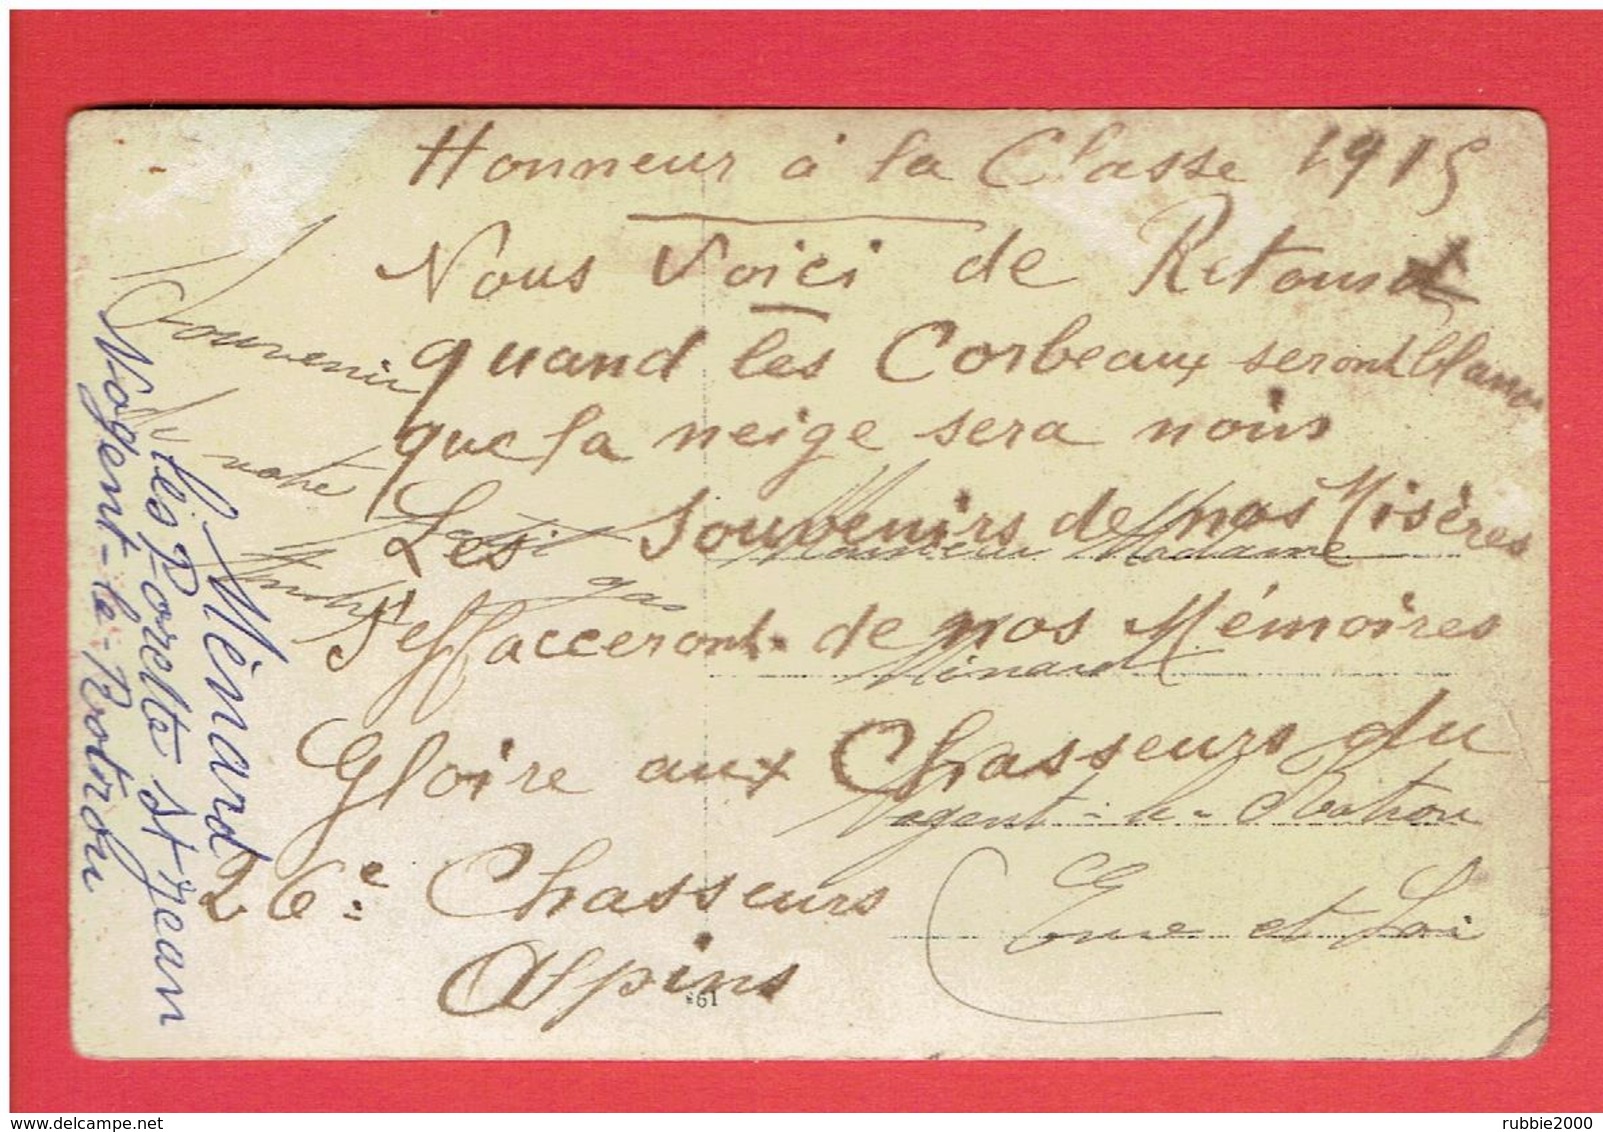 Honneur à la Classe 1915
Nous Voici de Retour
quand les Corbeaux seront Blanc
que la neige sera noir
Les Souvenirs de nos Misères
S'effacceront de nos Mémoires
Gloire aux Chasseurs du
26e Chasseurs
Alpins
Souvenir
de
votre
Petit
gas
Monsieur Madame
Ménard
Nogent-le-Rotrou
Eure et Loi
61
Ménard
les Porelte St Jean
Nogent-le-Rotrou
rubbie2000